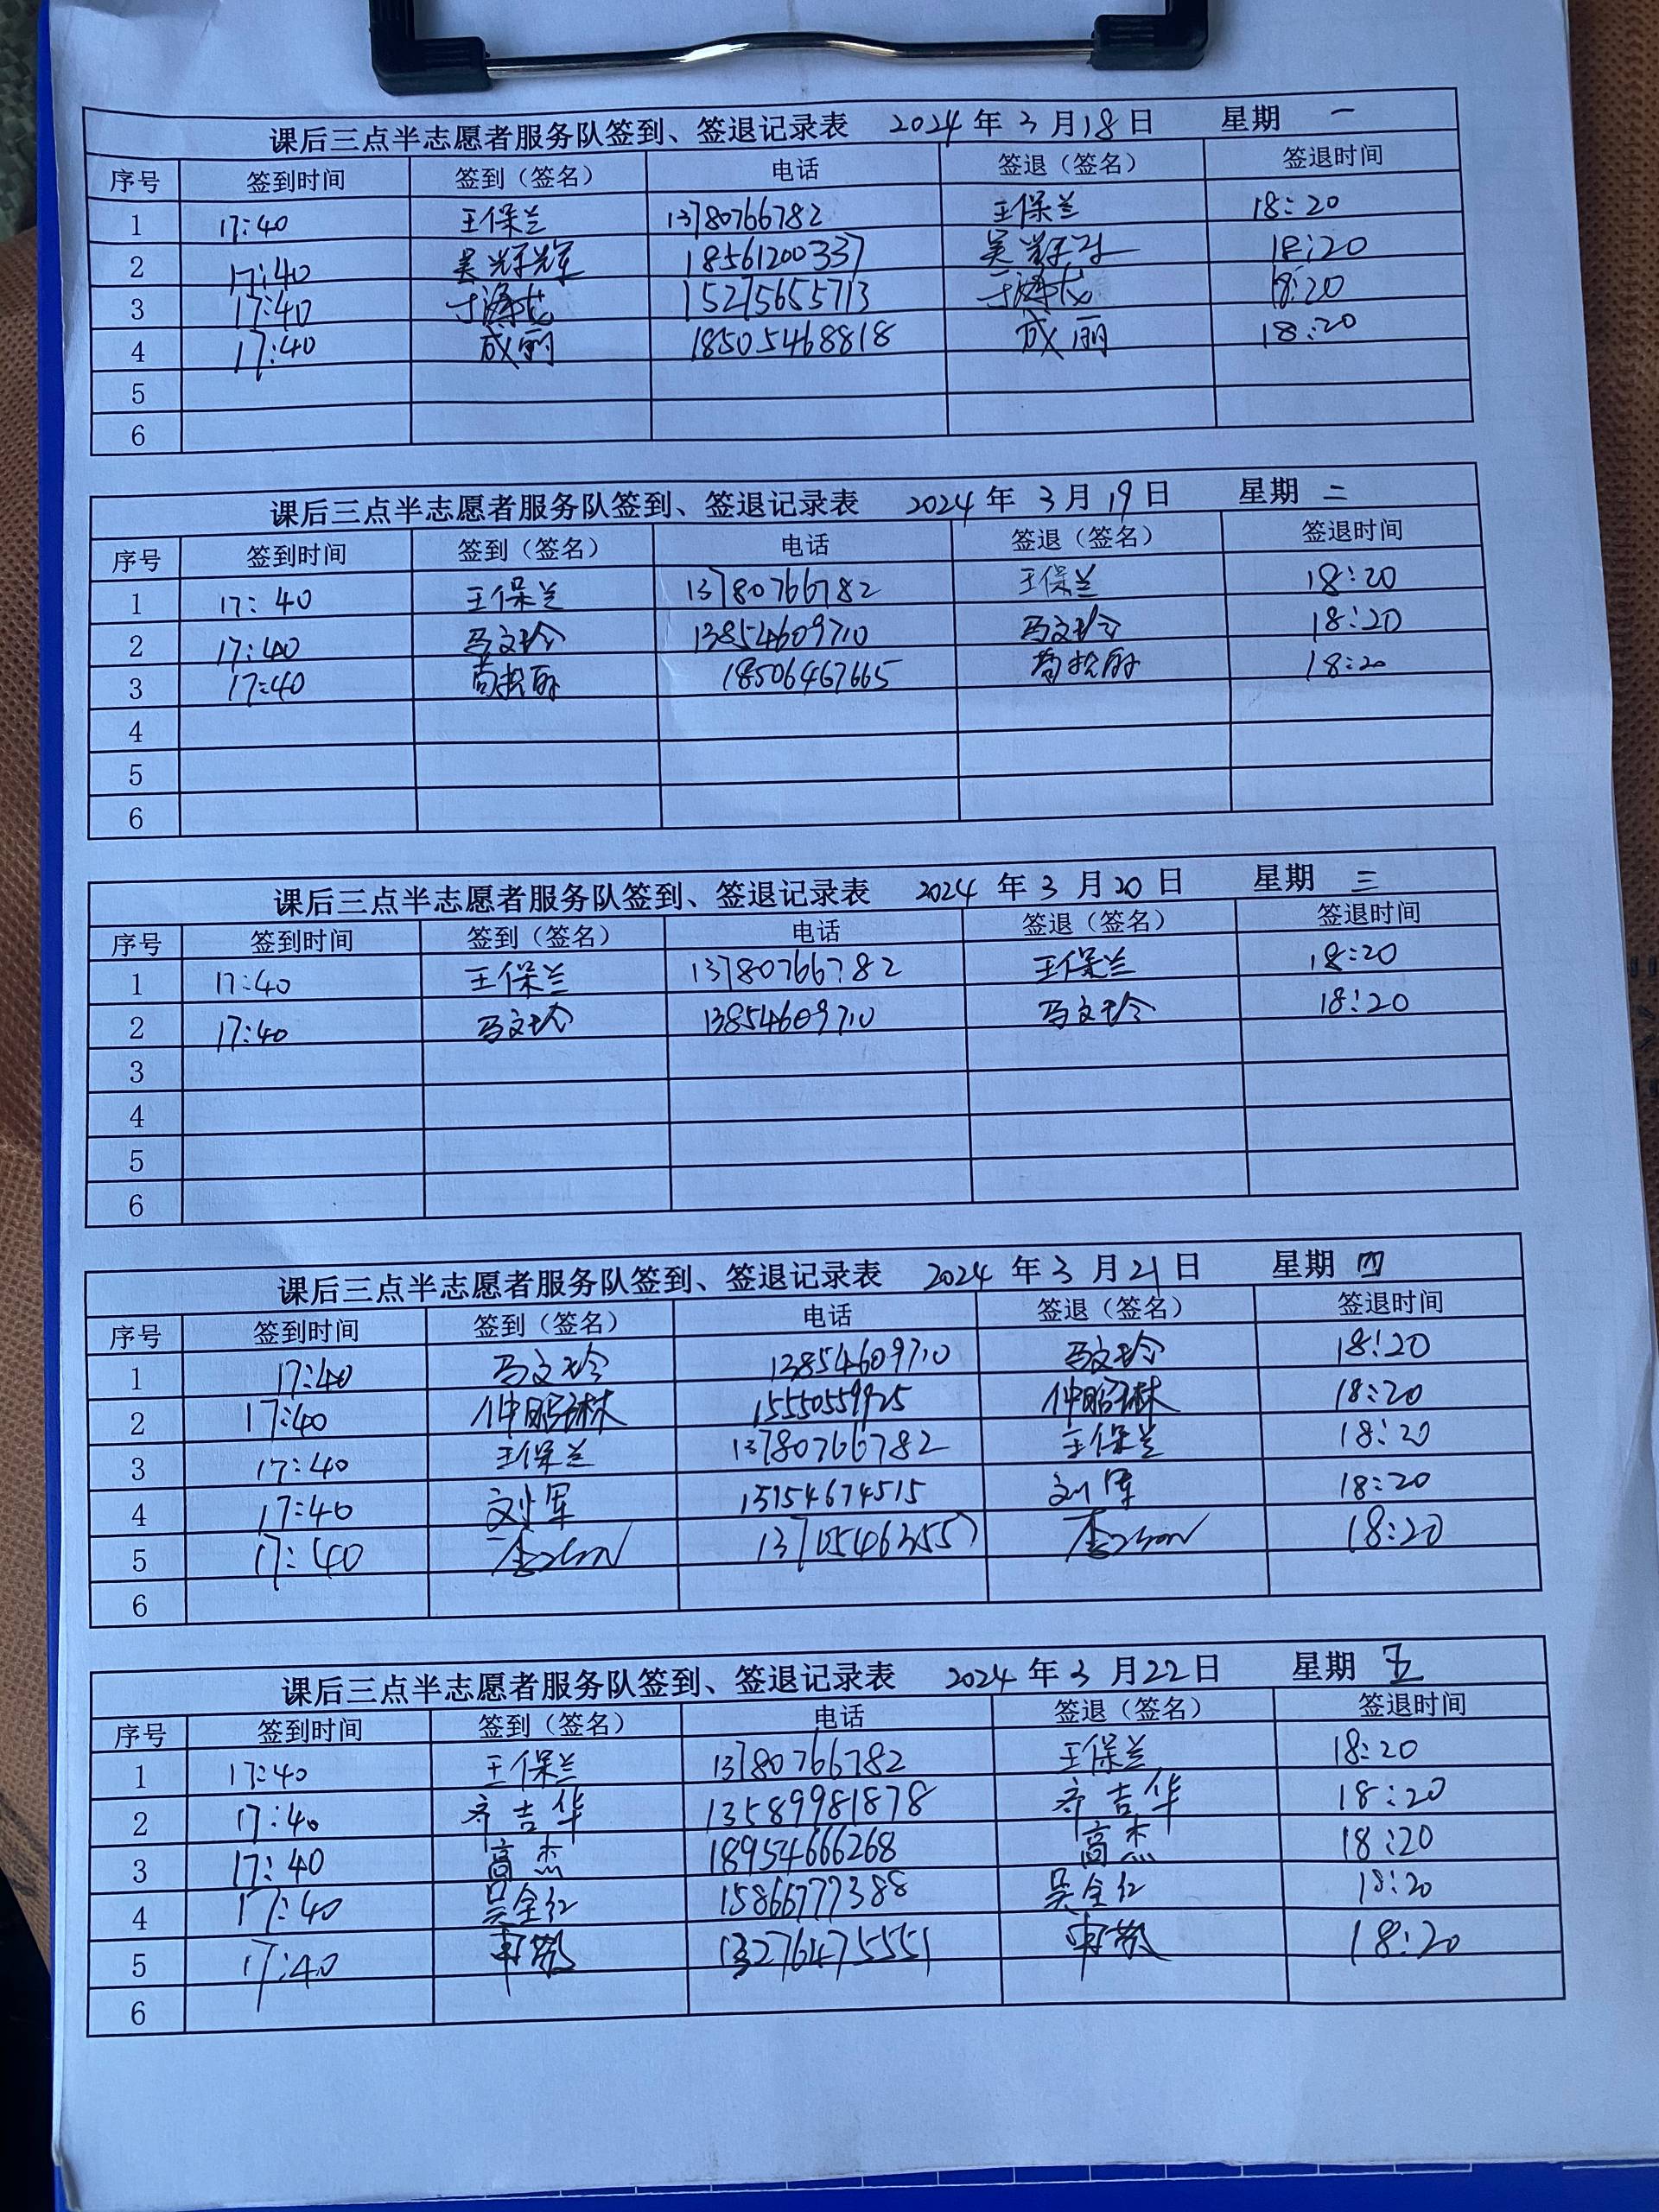 课后三点半志愿者服务队签到、签退记录表 2024 年 3 月 18 日 星期 一
序号 签到时间 签到（签名） 电话 签退（签名） 签退时间
1 17:40 王保兰 13780766782 王保兰 18:20
2 17:40 吴辉辉 18561200337 吴 18:20
3 17:40 于海龙 15275655713 于海龙 18:20
4 17:40 成丽 18505468818 成丽 18:20
5
6
课后三点半志愿者服务队签到、签退记录表 2024 年 3 月 19 日 星期 二
序号 签到时间 签到（签名） 电话 签退（签名） 签退时间
1 17:40 王保兰 13780766782 王保兰 18:20
2 17:40 马文玲 13854609710 马文玲 18:20
3 17:40 18506467665 18:20
4
5
6
课后三点半志愿者服务队签到、签退记录表 2024 年 3 月 20 日 星期 三
序号 签到时间 签到（签名） 电话 签退（签名） 签退时间
1 17:40 王保兰 13780766782 王保兰 18:20
2 17:40 马文玲 13854609710 马文玲 18:20
3
4
5
6
课后三点半志愿者服务队签到、签退记录表 2024 年 3 月 21 日 星期 四
序号 签到时间 签到（签名） 电话 签退（签名） 签退时间
1 17:40 马文玲 13854609710 马文玲 18:20
2 17:40 仲昭琳 15550559925 仲昭琳 18:20
3 17:40 王保兰 13780766782 王保兰 18:20
4 17:40 刘军 13754674515 刘军 18:20
5 17:40 13705463557 18:20
6
课后三点半志愿者服务队签到、签退记录表 2024 年 3 月 22 日 星期 五
序号 签到时间 签到（签名） 电话 签退（签名） 签退时间
1 17:40 王保兰 13780766782 王保兰 18:20
2 17:40 齐吉华 13589981878 齐吉华 18:20
3 17:40 高杰 18954666268 高杰 18:20
4 17:40 吴全红 15866777388 吴全红 18:20
5 17:40 13276475551 18:20
6